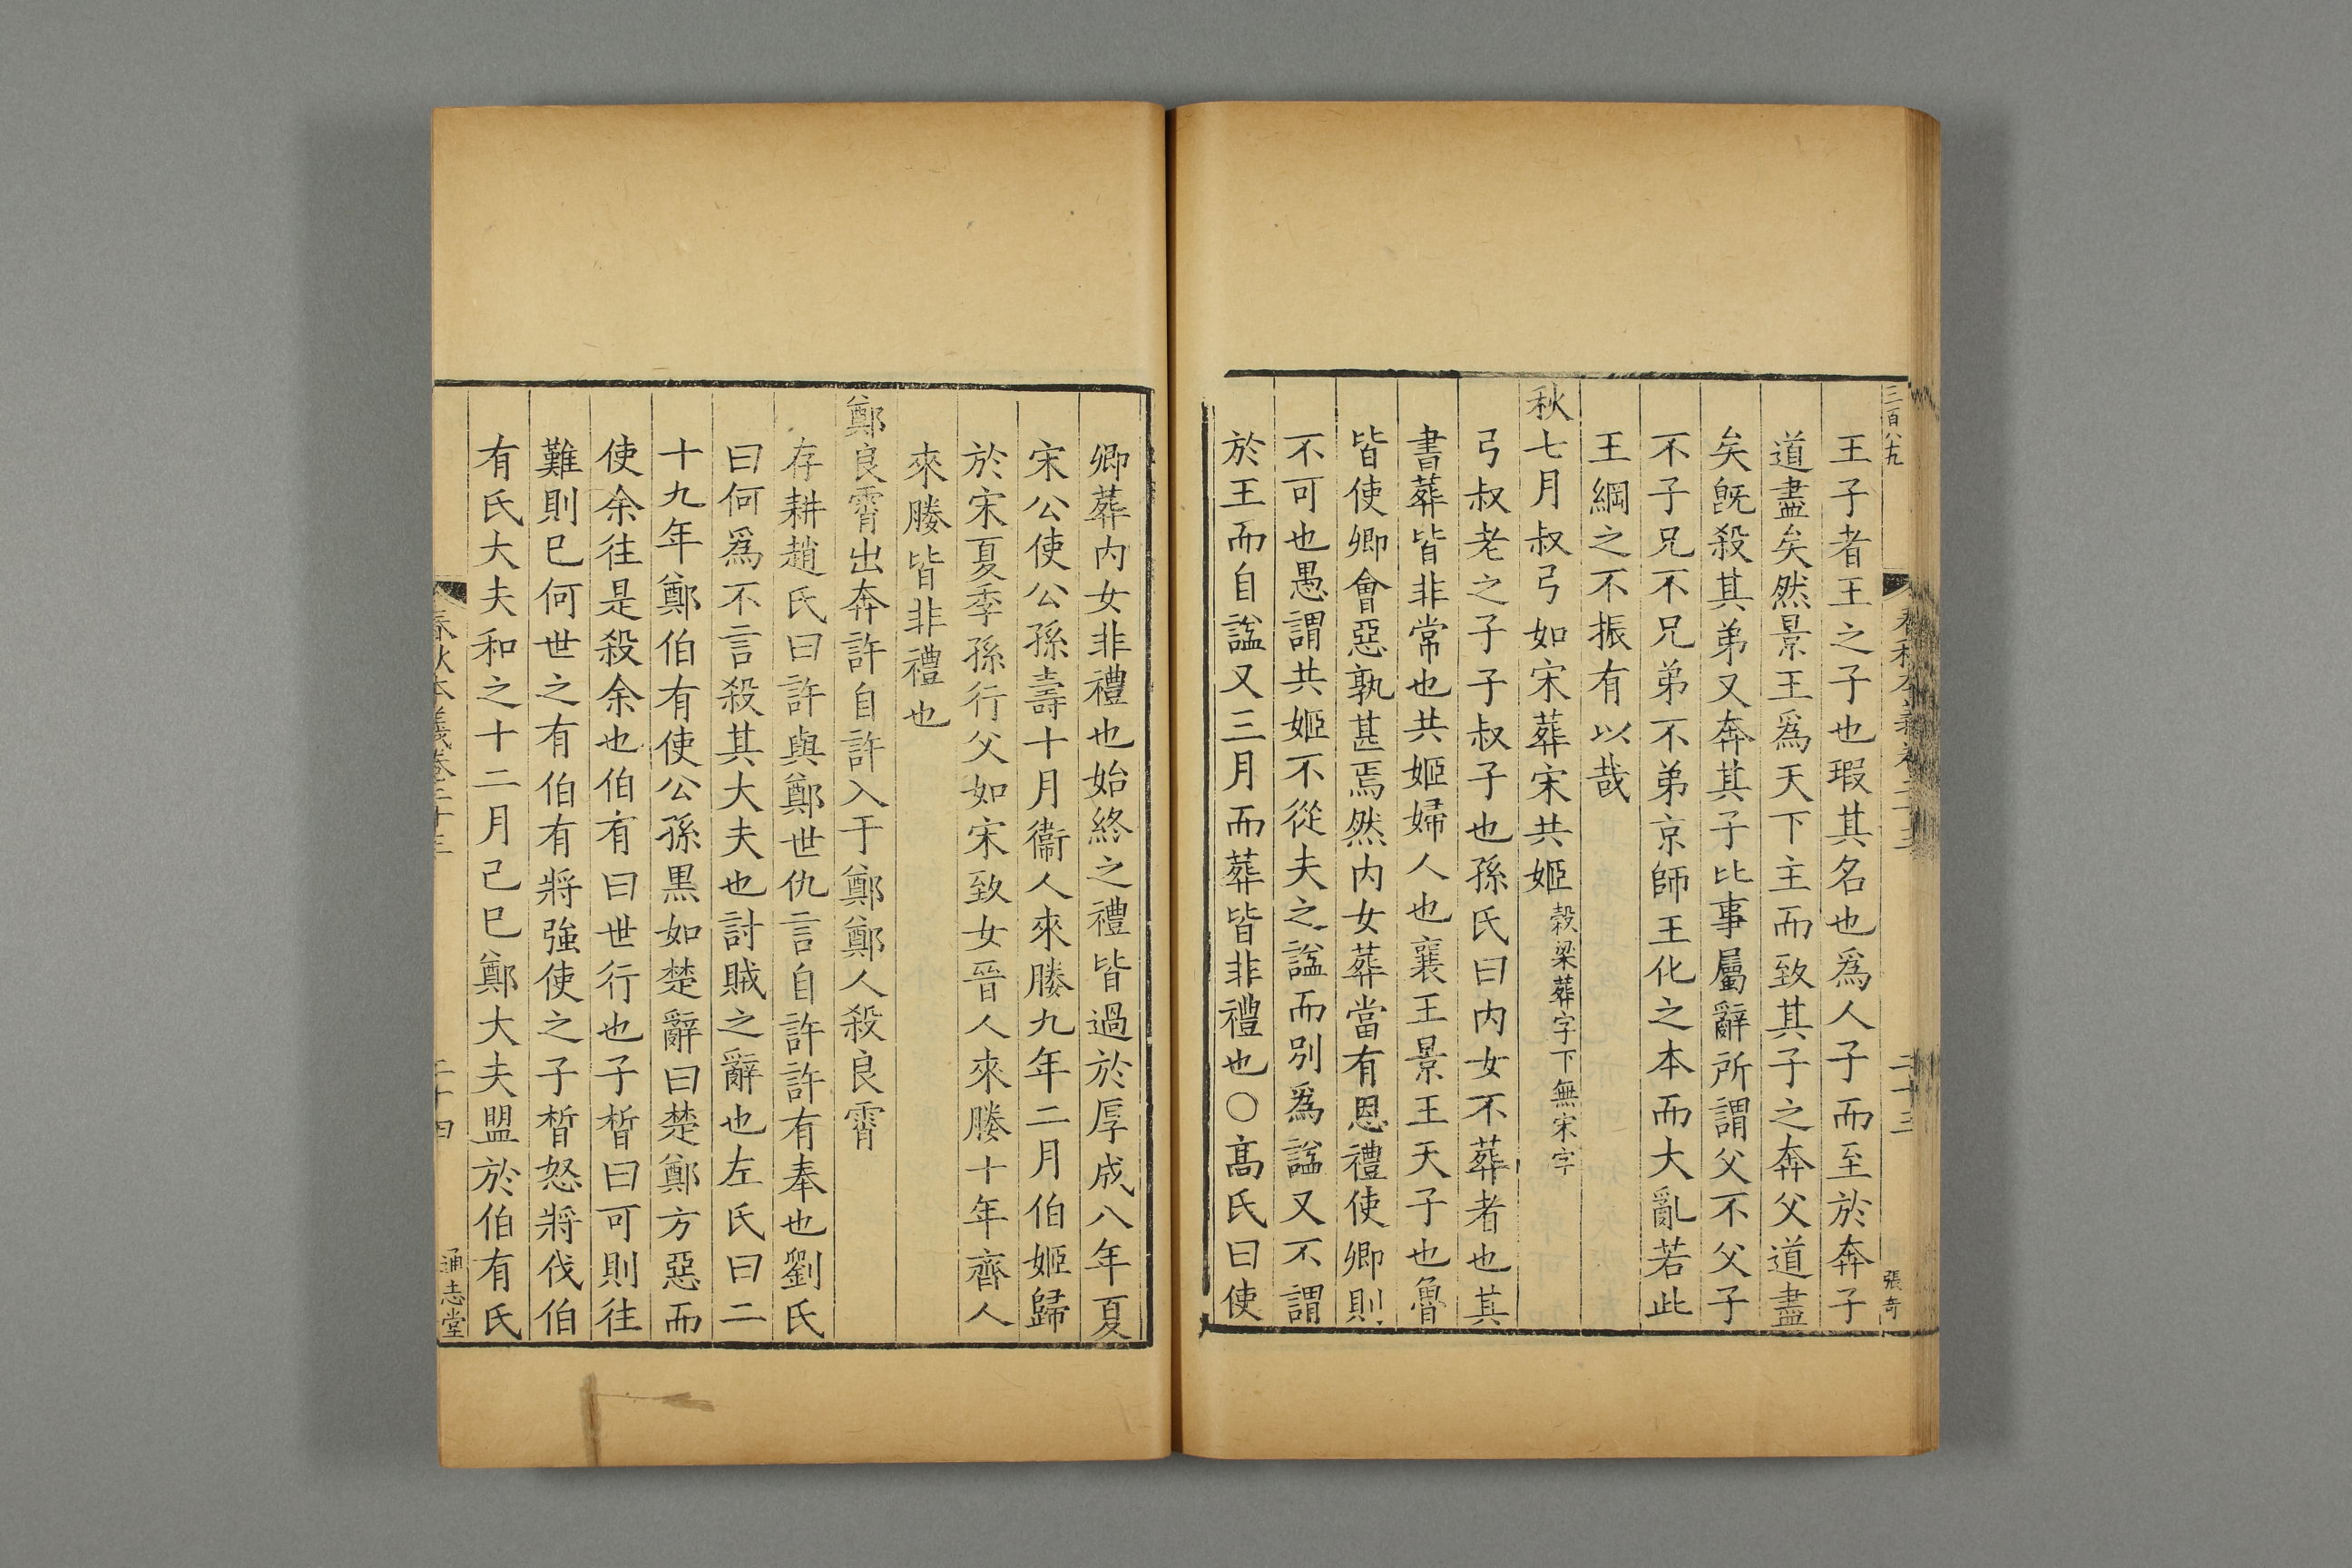 三百八九
春秋本義卷二十三
二十三
張奇
王子者王之子也瑕其名也爲人子而至於奔子
道盡矣然景王爲天下主而致其子之奔父道盡
矣旣殺其弟又奔其子比事屬辭所謂父不父子
不子兄不兄弟不弟京師王化之本而大亂若此
王綱之不振有以哉
秋七月叔弓如宋葬宋共姬穀梁葬字下無宋字
弓叔老之子子叔子也孫氏曰內女不葬者也其
書葬皆非常也共姬婦人也襄王景王天子也魯
皆使卿會惡孰甚焉然内女葬當有恩禮使卿則
不可也愚謂共姬不從夫之諡而別爲諡又不謂
於王而自諡又三月而葬皆非禮也○高氏曰使
卿葬内女非禮也始終之禮皆過於厚成八年夏
宋公使公孫壽十月衞人來媵九年二月伯姬歸
於宋夏季孫行父如宋致女晉人來媵十年齊人
來媵皆非禮也
鄭良霄出奔許自許入于鄭鄭人殺良霄
存耕趙氏曰許與鄭世仇言自許許有奉也劉氏
曰何爲不言殺其大夫也討賊之辭也左氏曰二
十九年鄭伯有使公孫黒如楚辭曰楚鄭方惡而
使余往是殺余也伯有曰世行也子晳曰可則往
難則已何世之有伯有將強使之子晳怒將伐伯
有氏大夫和之十二月己巳鄭大夫盟於伯有氏
春秋本義卷二十三
二十四
通志堂